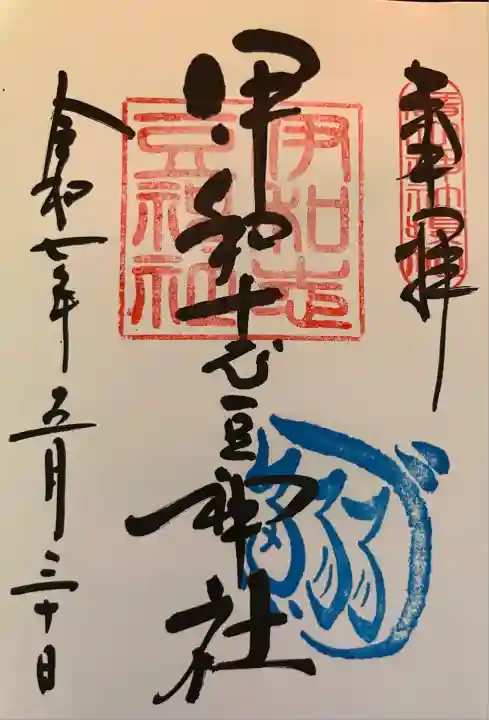 奉拝
伊和志豆神社
伊和志
豆神社
令和七年五月三十日